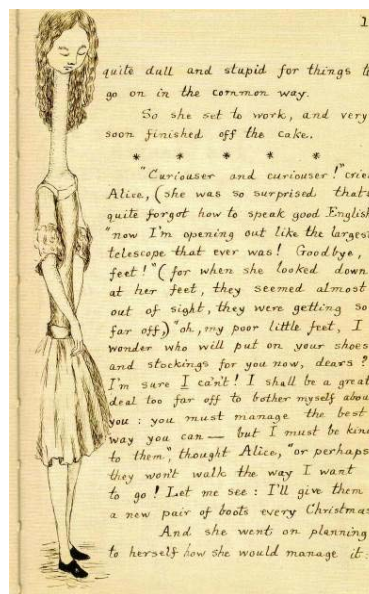 1
quite dull and stupid for things t
go on in the common way.
So she set to work, and very
soon finished off the cake.
* * * * *
"Curiouser and curiouser!" crie
Alice, (she was so surprised that
quite forgot how to speak good English
"now I'm opening out like the largest
telescope that ever was! Goodbye,
feet!" (for when she looked down
at her feet, they seemed almost
out of sight, they were getting so
far off,) "oh, my poor little feet, I
wonder who will put on your shoes
and stockings for you now, dears?
I'm sure I can't! I shall be a great
deal too far off to bother myself abou
you: you must manage the best
way you can — but I must be kin
to them", thought Alice, "or perhaps
they won't walk the way I want
to go! Let me see: I'll give them
a new pair of boots every Christmas
And she went on planning
to herself how she would manage it: